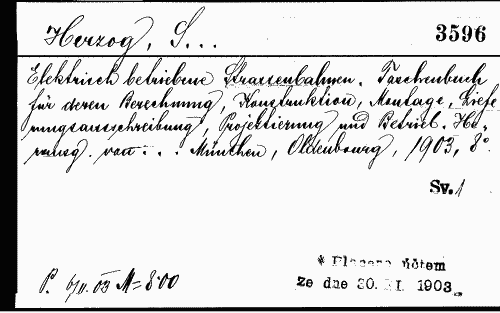 Herzog, S...
3596
Elektrisch betriebene Strassenbahnen. Taschenbuch
für deren Berechnung, Konstruktion, Montage, Liefe
rungsausschreibung, Projektierung und Betrieb. He-
rausg. von... München, Oldenbourg, 1903, 8°.
Sv. 1
* Placeno účtem
ze dne 30. XI. 1903
P. 6/II. 03 M = 8·00